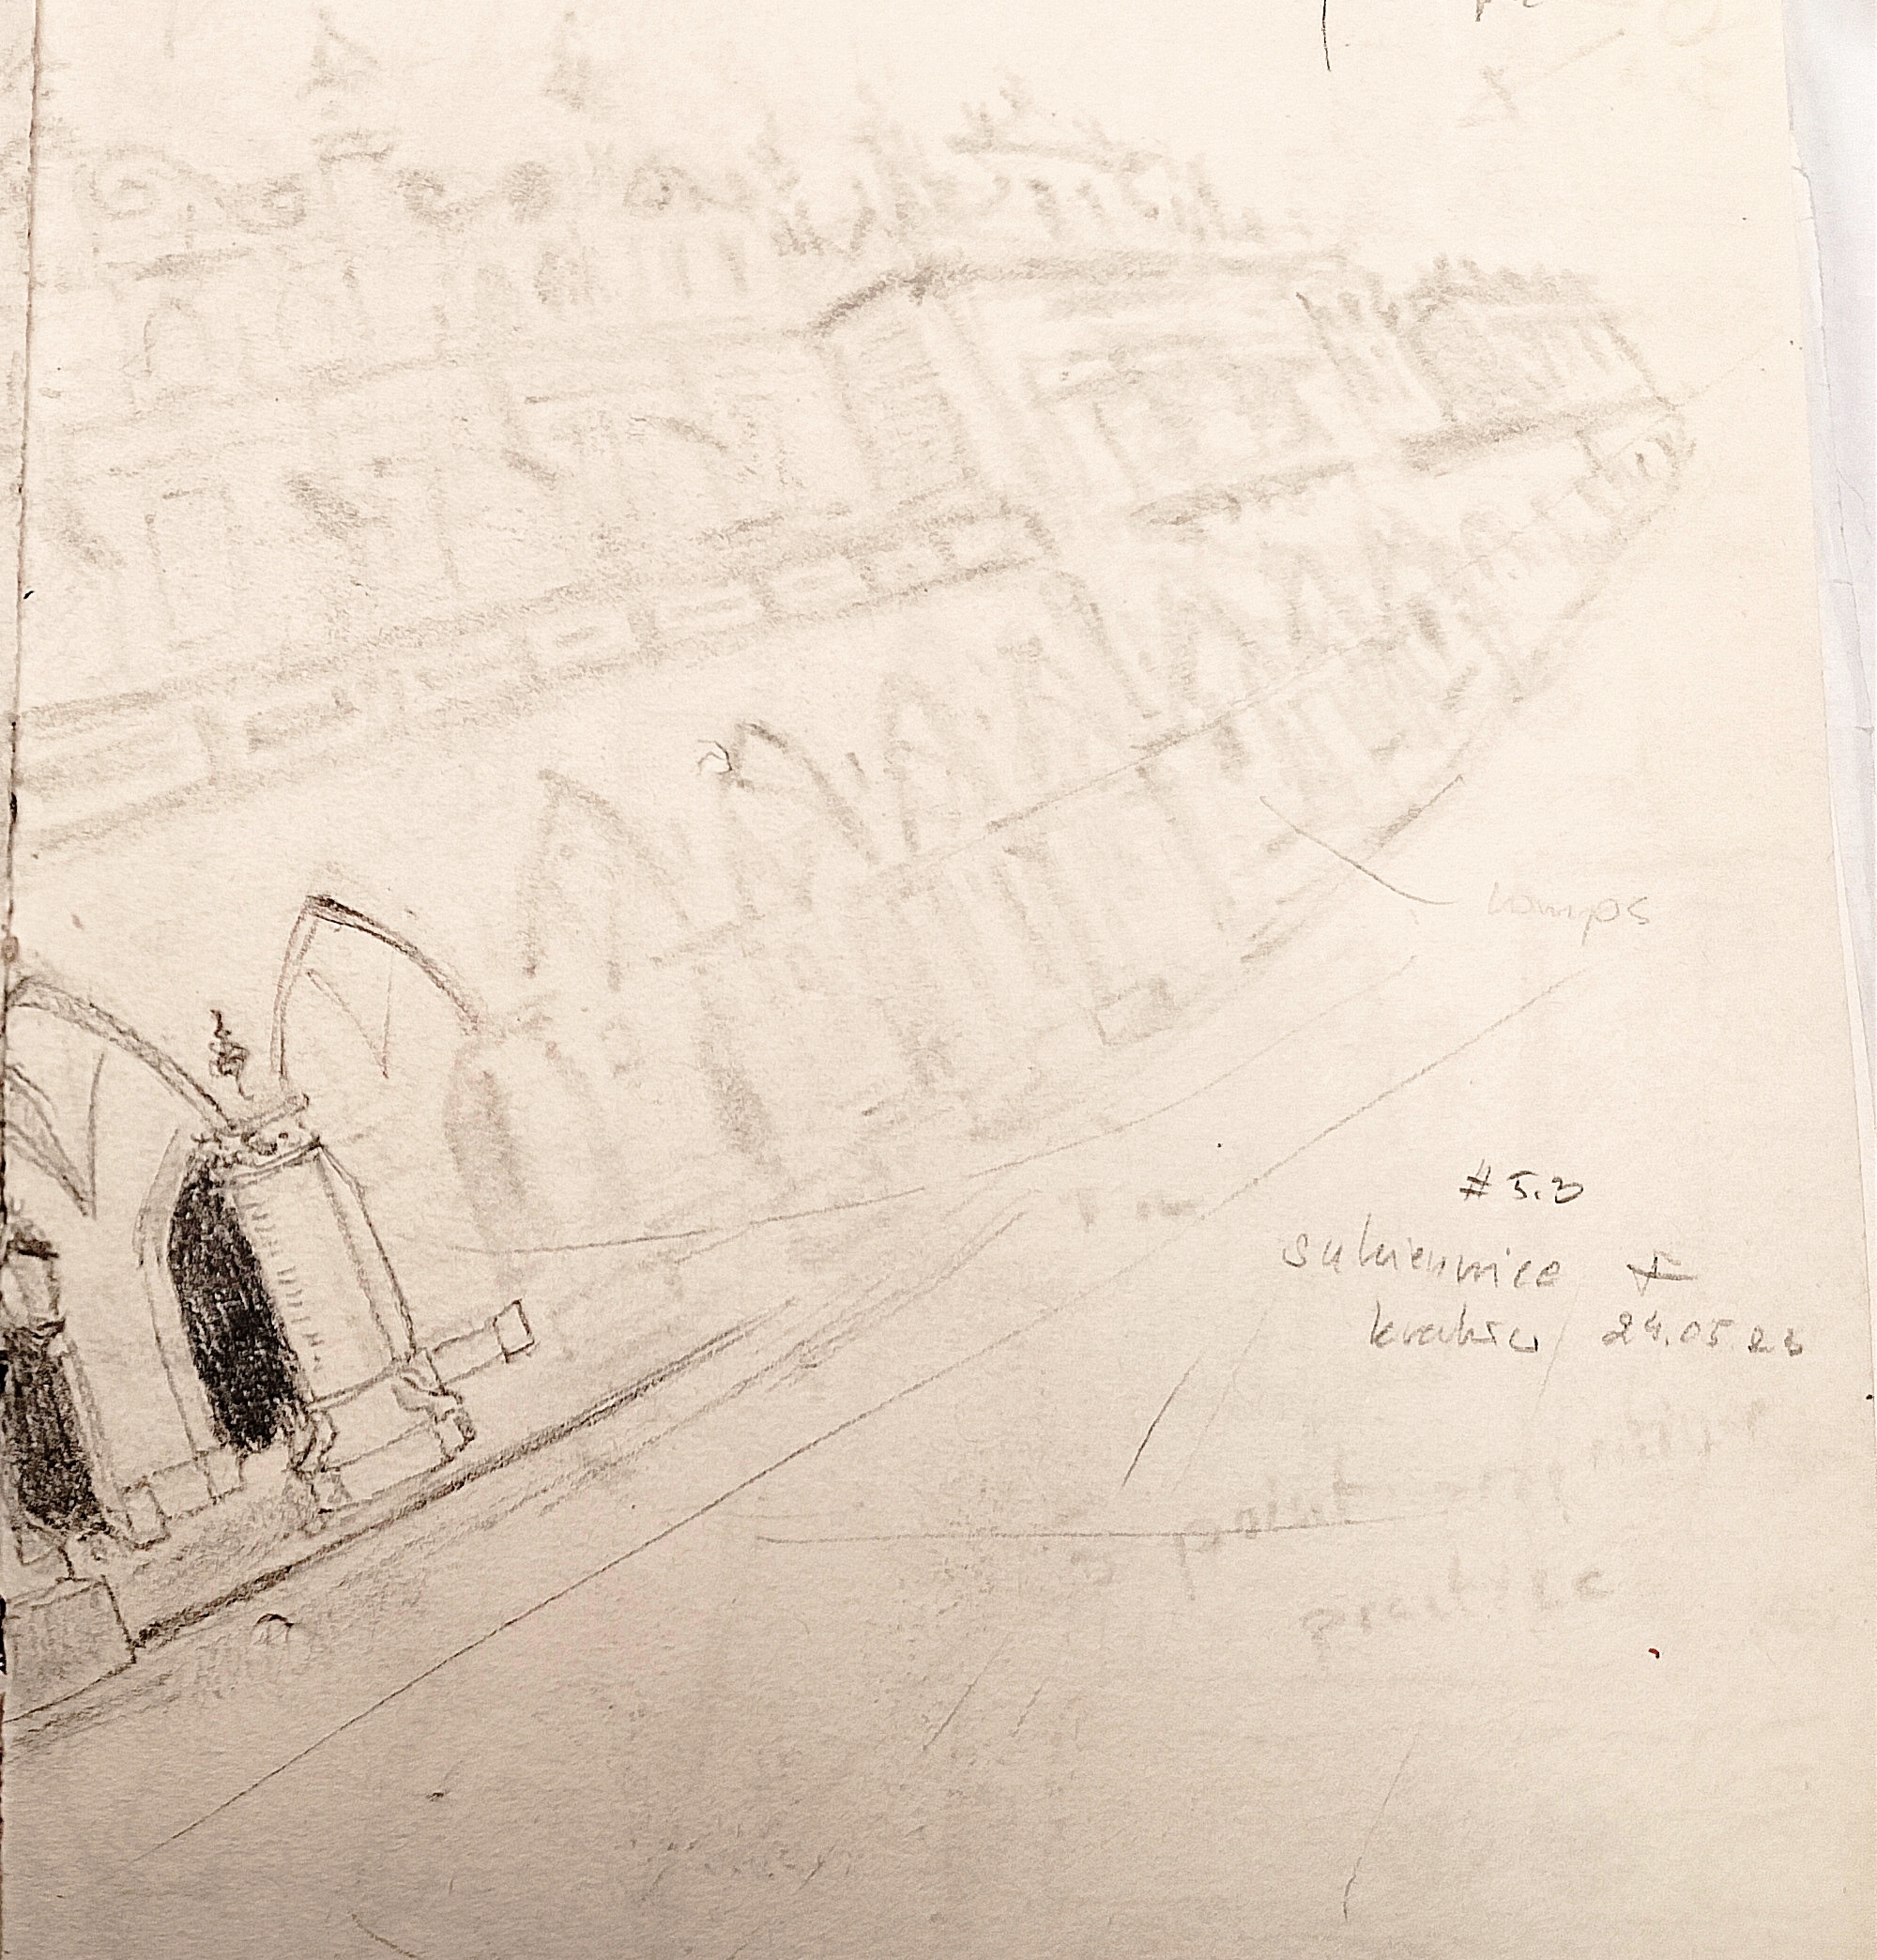 lamps
#5.3
sukiennice
kraków 24.05.23
5 point
practice